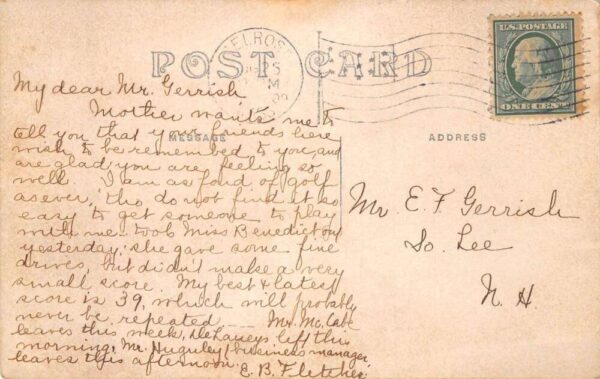 POST CARD
U.S. POSTAGE
ONE CENT
MESSAGE
ADDRESS
My dear Mr. Gerrish
Mother wants me to
tell you that your friends here
wish to be remembered to you, and
are glad you are feeling so
well. I am as fond of golf
as ever, tho do not find it so
easy to get someone to play
with me. took Miss Benedict out
yesterday; she gave some fine
drives, but didn't make a very
small score. My best & latest
score is 39, which will probably
never be repeated ___ Mr. McCabe
leaves this week, DeLaneys left this
morning, Mr. Huguley, business manager,
leaves this afternoon. E. B. Fletcher
Mr. E. F. Gerrish
So. Lee
N. H.